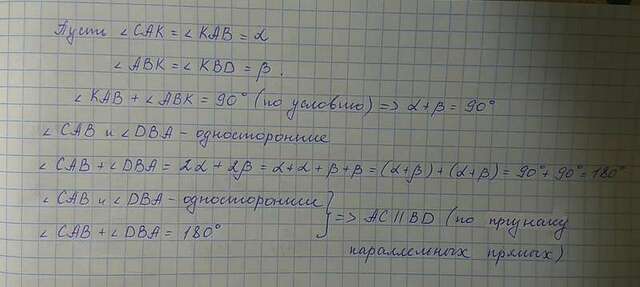 Пусть ∠CAK = ∠KAB = α
∠ABK = ∠KBD = β.
∠KAB + ∠ABK = 90° (по условию) => α+β = 90°
∠CAB и ∠DBA - односторонние
∠CAB + ∠DBA = 2α + 2β = α + α + β + β = (α+β) + (α+β) = 90° + 90° = 180°
∠CAB и ∠DBA - односторонние } => AC || BD (по признаку
∠CAB + ∠DBA = 180° параллельных прямых)